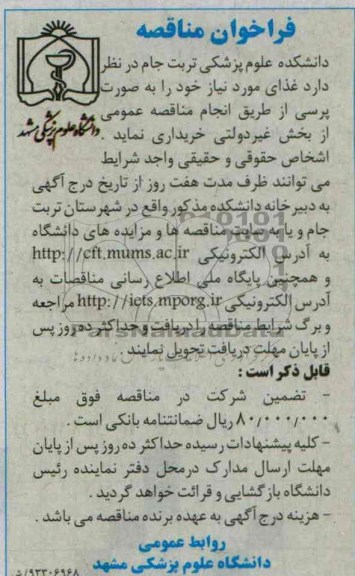 فراخوان مناقصه
دانشگاه علوم پزشکی مشهد
دانشکده علوم پزشکی تربت جام در نظر
دارد غذای مورد نیاز خود را به صورت
پرسی از طریق انجام مناقصه عمومی
از بخش غیردولتی خریداری نماید .
اشخاص حقوقی و حقیقی واجد شرایط
می توانند ظرف مدت هفت روز از تاریخ درج آگهی
به دبیرخانه دانشکده مذکور واقع در شهرستان تربت
جام و یا به سایت مناقصه ها و مزایده های دانشگاه
به آدرس الکترونیکی http://cft.mums.ac.ir
و همچنین پایگاه ملی اطلاع رسانی مناقصات به
آدرس الکترونیکی http://iets.mporg.ir مراجعه
و برگ شرایط مناقصه را دریافت و حداکثر ده روز پس
از پایان مهلت دریافت تحویل نمایند .
قابل ذکر است :
- تضمین شرکت در مناقصه فوق مبلغ
۸۰/۰۰۰/۰۰۰ ریال ضمانتنامه بانکی است .
- کلیه پیشنهادات رسیده حداکثر ده روز پس از پایان
مهلت ارسال مدارک درمحل دفتر نماینده رئیس
دانشگاه بازگشایی و قرائت خواهد گردید .
- هزینه درج آگهی به عهده برنده مناقصه می باشد .
روابط عمومی
دانشگاه علوم پزشکی مشهد
۹۳۳۰۶۹۶۸/ت